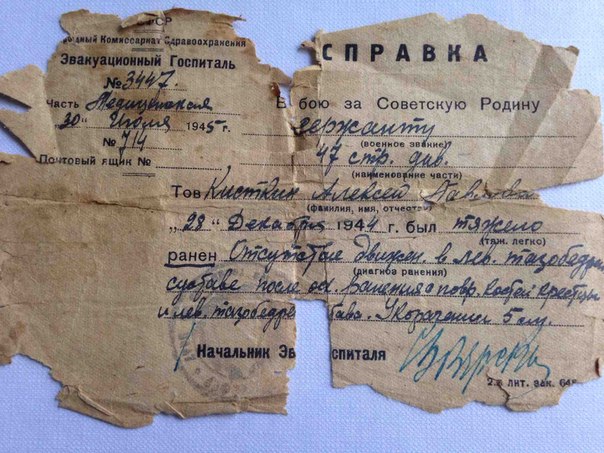 СССР
родный Комиссариат Здравоохранения
Эвакуационный Госпиталь
№ 3447.
Часть Медицинская
"30" Июля 1945 г.
№ 714
Почтовый ящик №
СПРАВКА
В бою за Советскую Родину
сержанту
(военное звание)
47 стр. див.
(наименование части)
Тов Кисткин Алексей
(фамилия, имя, отчество)
"28" Декабря 1944 г. был тяжело
(тяж. легко)
ранен Отсутствие движен. в лев. тазобедрен
(диагноз ранения)
суставе после ос. ранения с повр. костей крестца
и лев. тазобедре става. Укорочение 5 см.
Начальник Эв спиталя
2-я лит. зак. 648